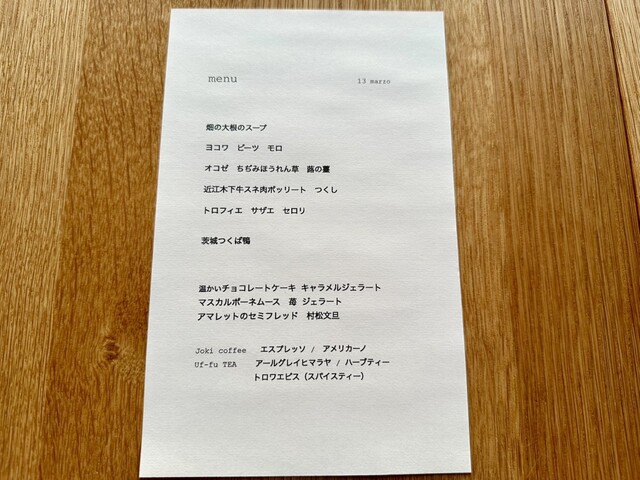 menu 13 marzo
畑の大根のスープ
ヨコワ ビーツ モロ
オコゼ ちぢみほうれん草 蕗の薹
近江木下牛スネ肉ボッリート つくし
トロフィエ サザエ セロリ
茨城つくば鴨
温かいチョコレートケーキ キャラメルジェラート
マスカルポーネムース 苺 ジェラート
アマレットのセミフレッド 村松文旦
Joki coffee エスプレッソ / アメリカーノ
Uf-fu TEA アールグレイヒマラヤ / ハーブティー
トロワエピス（スパイスティー）